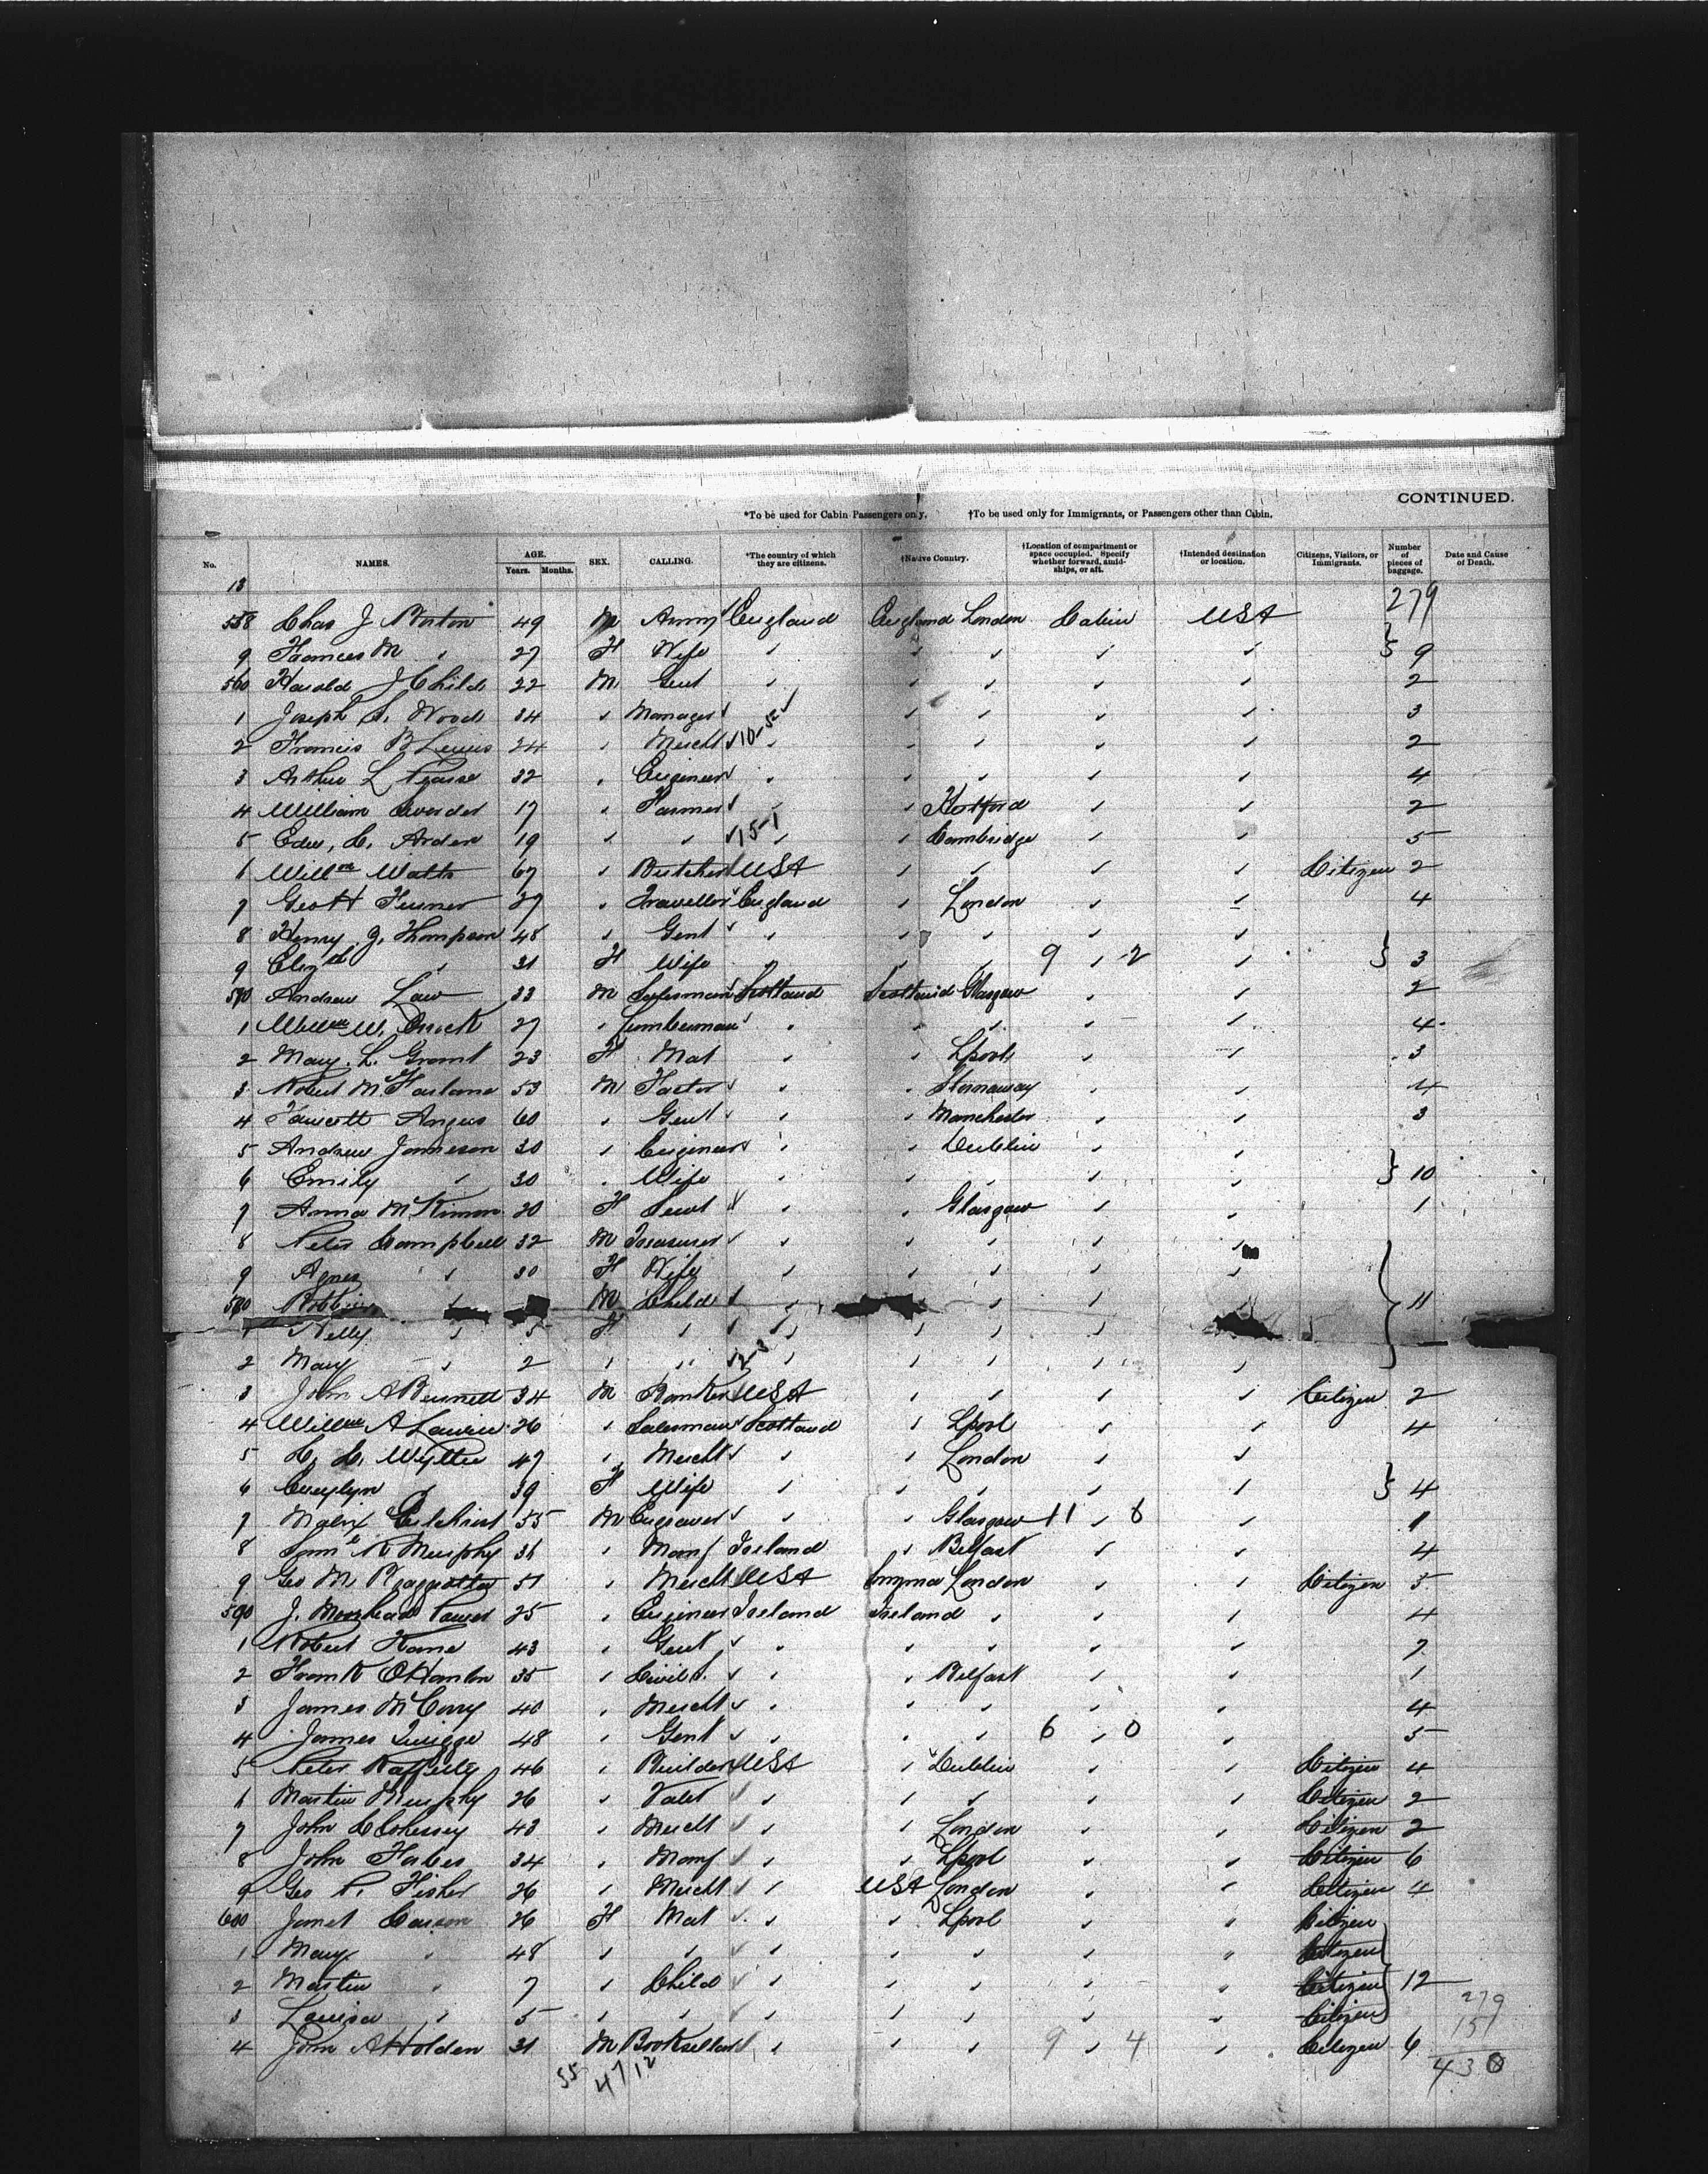 CONTINUED.
*To be used for Cabin Passengers only. †To be used only for Immigrants, or Passengers other than Cabin.
No. NAMES. AGE. Years. Months. SEX. CALLING. *The country of which they are citizens. †Native Country. †Location of compartment or space occupied. Specify whether forward, amidships, or aft. †Intended destination or location. Citizens, Visitors, or Immigrants. Number of pieces of baggage. Date and Cause of Death.
13
279
558 Chas J. Norton 49 M Army England England London Cabin USA
9 Frances M " 27 F Wife " " " " " 9
560 Harold J Child 22 M Gent " " " " " 2
1 Joseph S. Wood 34 " Manager " " " " 3
2 Francis B Lewis 24 " Mercht 10-52 " " " " " 2
3 Arthur L Pearse 32 " Engineer " " " " " 4
4 William 17 " Farmer " " Hertford " " 2
5 Edw. C. Arden 19 " " 15-1 " " Cambridge " " 5
6 Willm Watts 67 " Butcher USA " " " " Citizen 2
7 Geo H Turner 27 " Traveller England " London " " 4
8 Henry J. Thompson 48 " Gent " " " " "
9 Elizth " 31 F Wife " " " 9 " 2 " 3
570 Andrew Law 33 M Salesman Scotland Scotland Glasgow " " 2
1 Willm W. 27 " Lumberman " " " " " 4
2 Mary L. Grant 23 F Mat " " Lpool " " 3
3 Robert McFarlane 53 M Factor " " Stornaway " " 4
4 Fawcett Angus 60 " Gent " " Manchester " " 3
5 Andrew Jameson 30 " Engineer " " Dublin " "
6 Emily " 30 " Wife " " " " " 10
7 Anna McKinnon 20 F Servt " " Glasgow " " 1
8 Peter Campbell 32 M Treasurer " " " " "
9 Agnes " 30 F Wife " " " " "
580 Robbin " M Child " " " 11
1 Nelly " 5 F " " " " "
2 Mary " 2 " " 2-3 " " " " "
3 John A Burnett 34 M Banker USA " " " " Citizen 2
4 Willm A Lawrie 26 " Salesman Scotland " Lpool " " 4
5 C. C. Wyllie 47 " Mercht " " London " "
6 Evelyn " 39 F Wife " " " " " 4
7 Gilchrist 55 M Engraver " " Glasgow 11 " 8 " 1
8 Saml R Murphy 31 " Manf Ireland " Belfast " " 4
9 Geo M. 51 " Mercht USA Smyrna London " " Citizen 5
590 J. Moorhead Power 25 " Engineer Ireland Ireland " " " 4
1 Robert Kane 43 " Gent " " " " " 7
2 Frank O'Hanlon 35 " Civil S. " " Belfast " " 1
3 James McCorry 40 " Mercht " " " " " 4
4 James Quigge 48 " Gent " " " 6 " 0 " 5
5 Peter Rafferty 46 " Builder USA " Dublin " " Citizen 4
6 Martin Murphy 26 " Valet " " " " " Citizen 2
7 John Clohessey 43 " Mercht " " London " " Citizen 2
8 John Faber 34 " Manf " " Lpool " " Citizen 6
9 Geo P. Fisher 26 " Mercht " USA London " " Citizen 4
600 Janet Carson 26 F Mat " " Lpool " " Citizen
1 Mary " 48 " " " " " " " Citizen
2 Martin " 7 " Child " " " " " Citizen 12
3 Louisa " 5 " " " " " " " Citizen
4 John A Holden 31 M Bookseller " " " 9 " 4 " Citizen 6
279
151
430
55 47/12